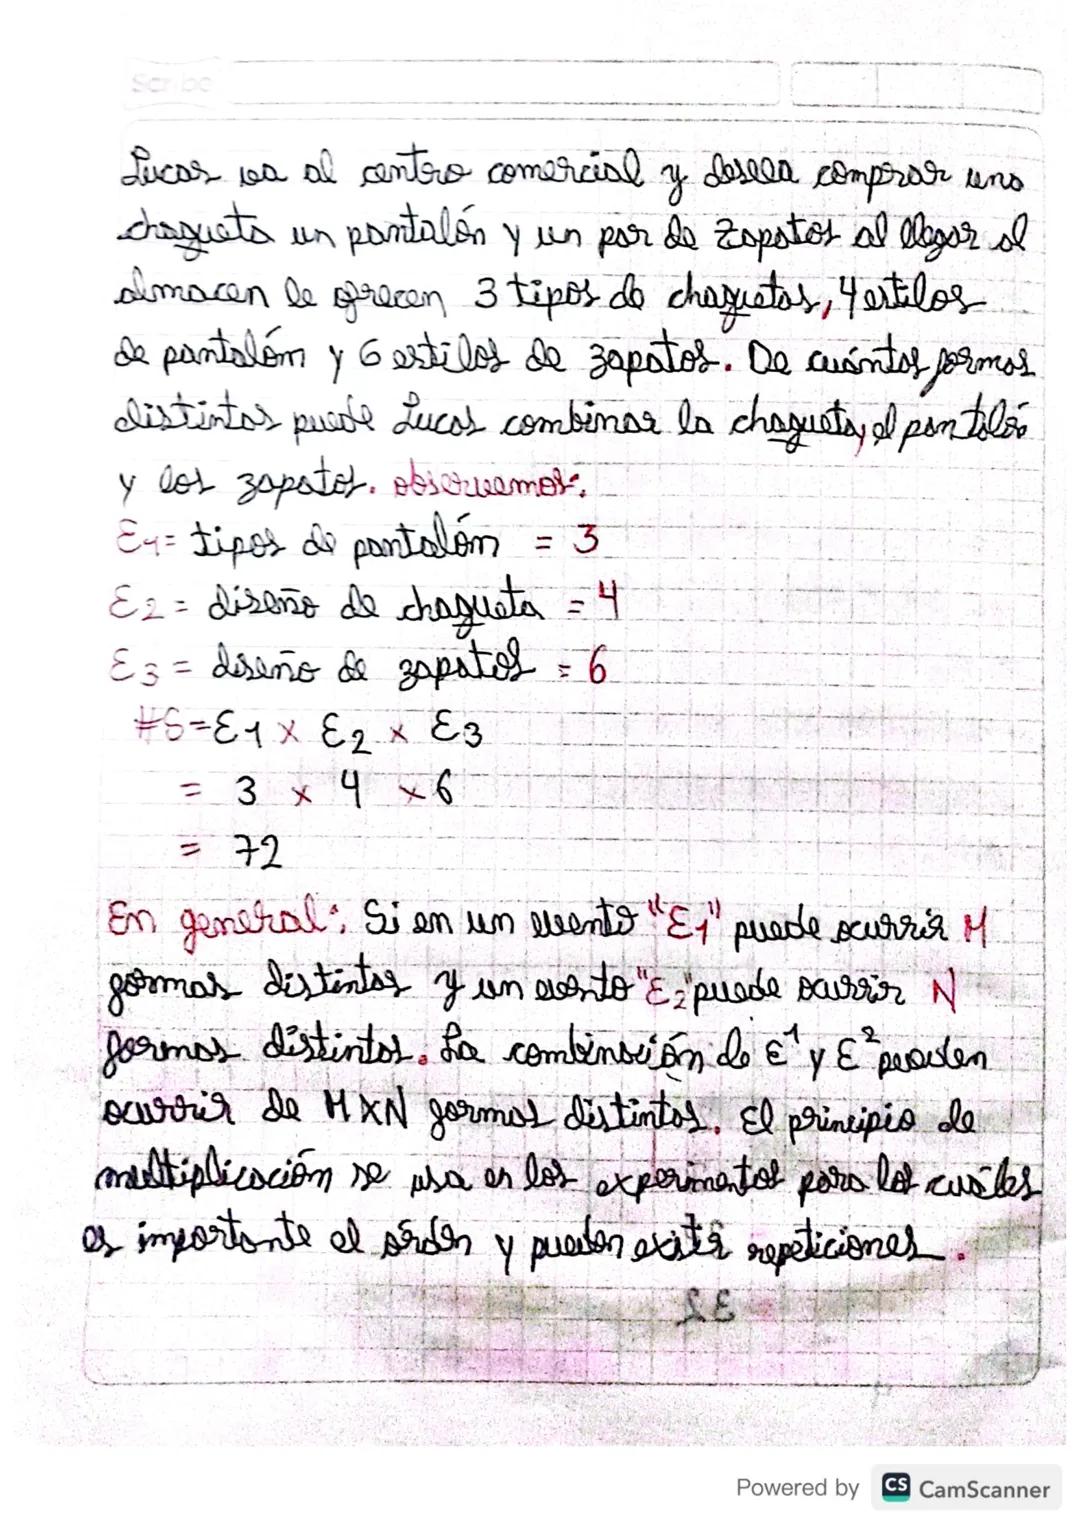 Scribe
Lucas va al centro comercial y desea comprar una
chaqueta un pantalón y un par de zapatos al llegar al
almacen le ofrecen 3 tipos de chaquetas, 4 estilos
de pantalóm y 6 estilos de zapatos. De cuántas formas
distintas puede Lucas combinar la chaqueta, el pantalón
y los zapatos. observemos:
E1= tipos de pantalóm = 3
E2 = diseño de chaqueta = 4
E3 = diseño de zapatos = 6
#S=E1 x E2 x E3
= 3 x 4 x 6
= 72
En general: Si en un evento "E1" puede ocurrir M
formas distintas y un evento "E2" puede ocurrir N
formas distintas. La combinación de E1 y E2 pueden
ocurrir de MXN formas distintas. El principio de
multiplicación se usa en los experimentos para los cuáles
es importante el orden y pueden existir repeticiones.
Powered by CS CamScanner